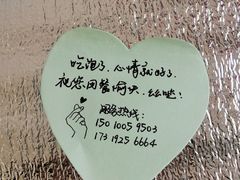 吃泡了,心情就好了.
祝您用餐愉快.丝哒!
服务热线:
150 1005 9503
173 1925 6664